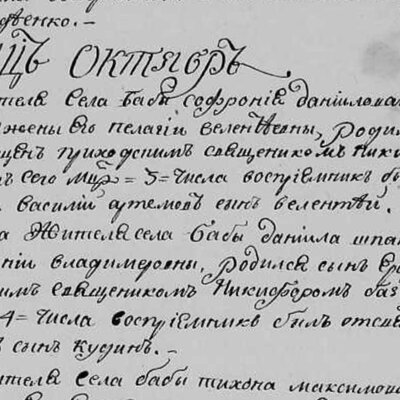 денко. –
цъ Октяорь
теля Села бабы софронія даніилова
жены его пелагіи велентѣевны, родил
щен приходскимъ священикомъ Ники
ъ сего = 5 = числа воспріемник бы
василіи артемовъ сынъ велентѣи.
а жителя села бабы даніила шпа
ніи владимеровны, родился сынъ
имъ священикомъ Никифоромъ
4 = числа воспріемникъ былъ отста
ъ сынъ кузинъ. –
ителя села бабы тихона максимо